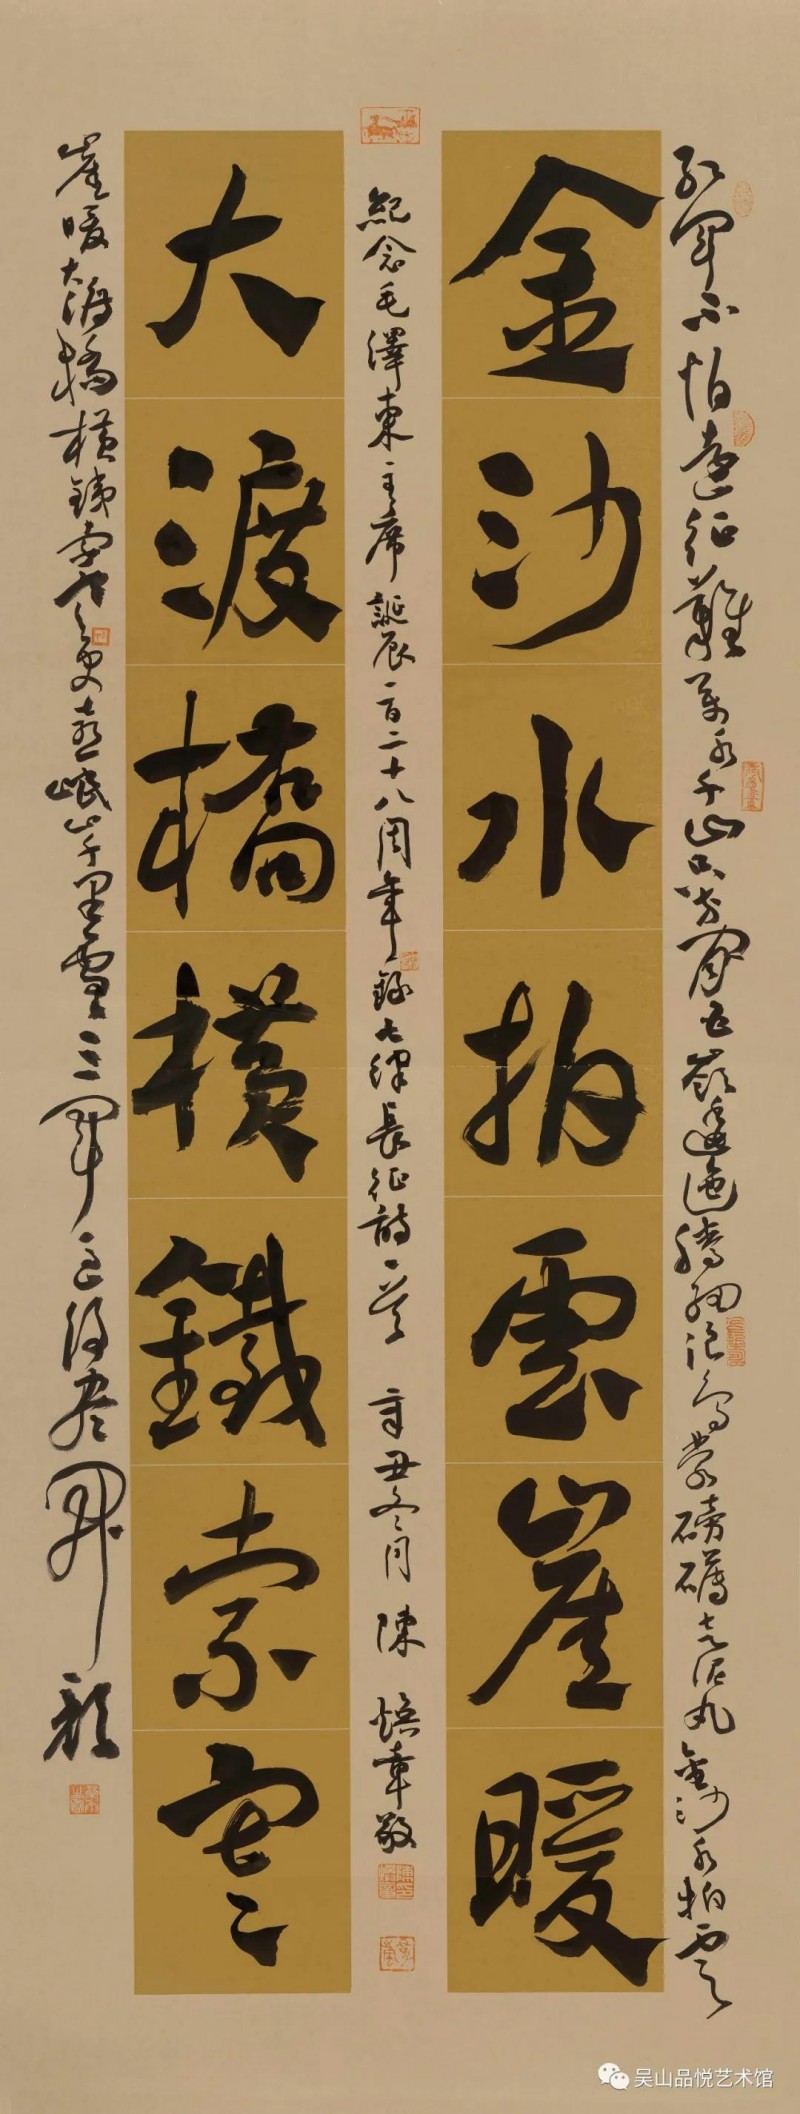 紅軍不怕遠征難萬水千山只等閒五嶺逶迤騰細浪烏蒙磅礴走泥丸金沙水拍雲
金沙水拍雲崖暖
紀念毛澤東主席誕辰一百二十八周年錄七律長征詩一首 辛丑冬月 陳煥章敬
大渡橋橫鐵索寒
崖暖大渡橋橫鐵索寒更喜岷山千里雪三軍過後盡開顏
吴山品悦艺术馆